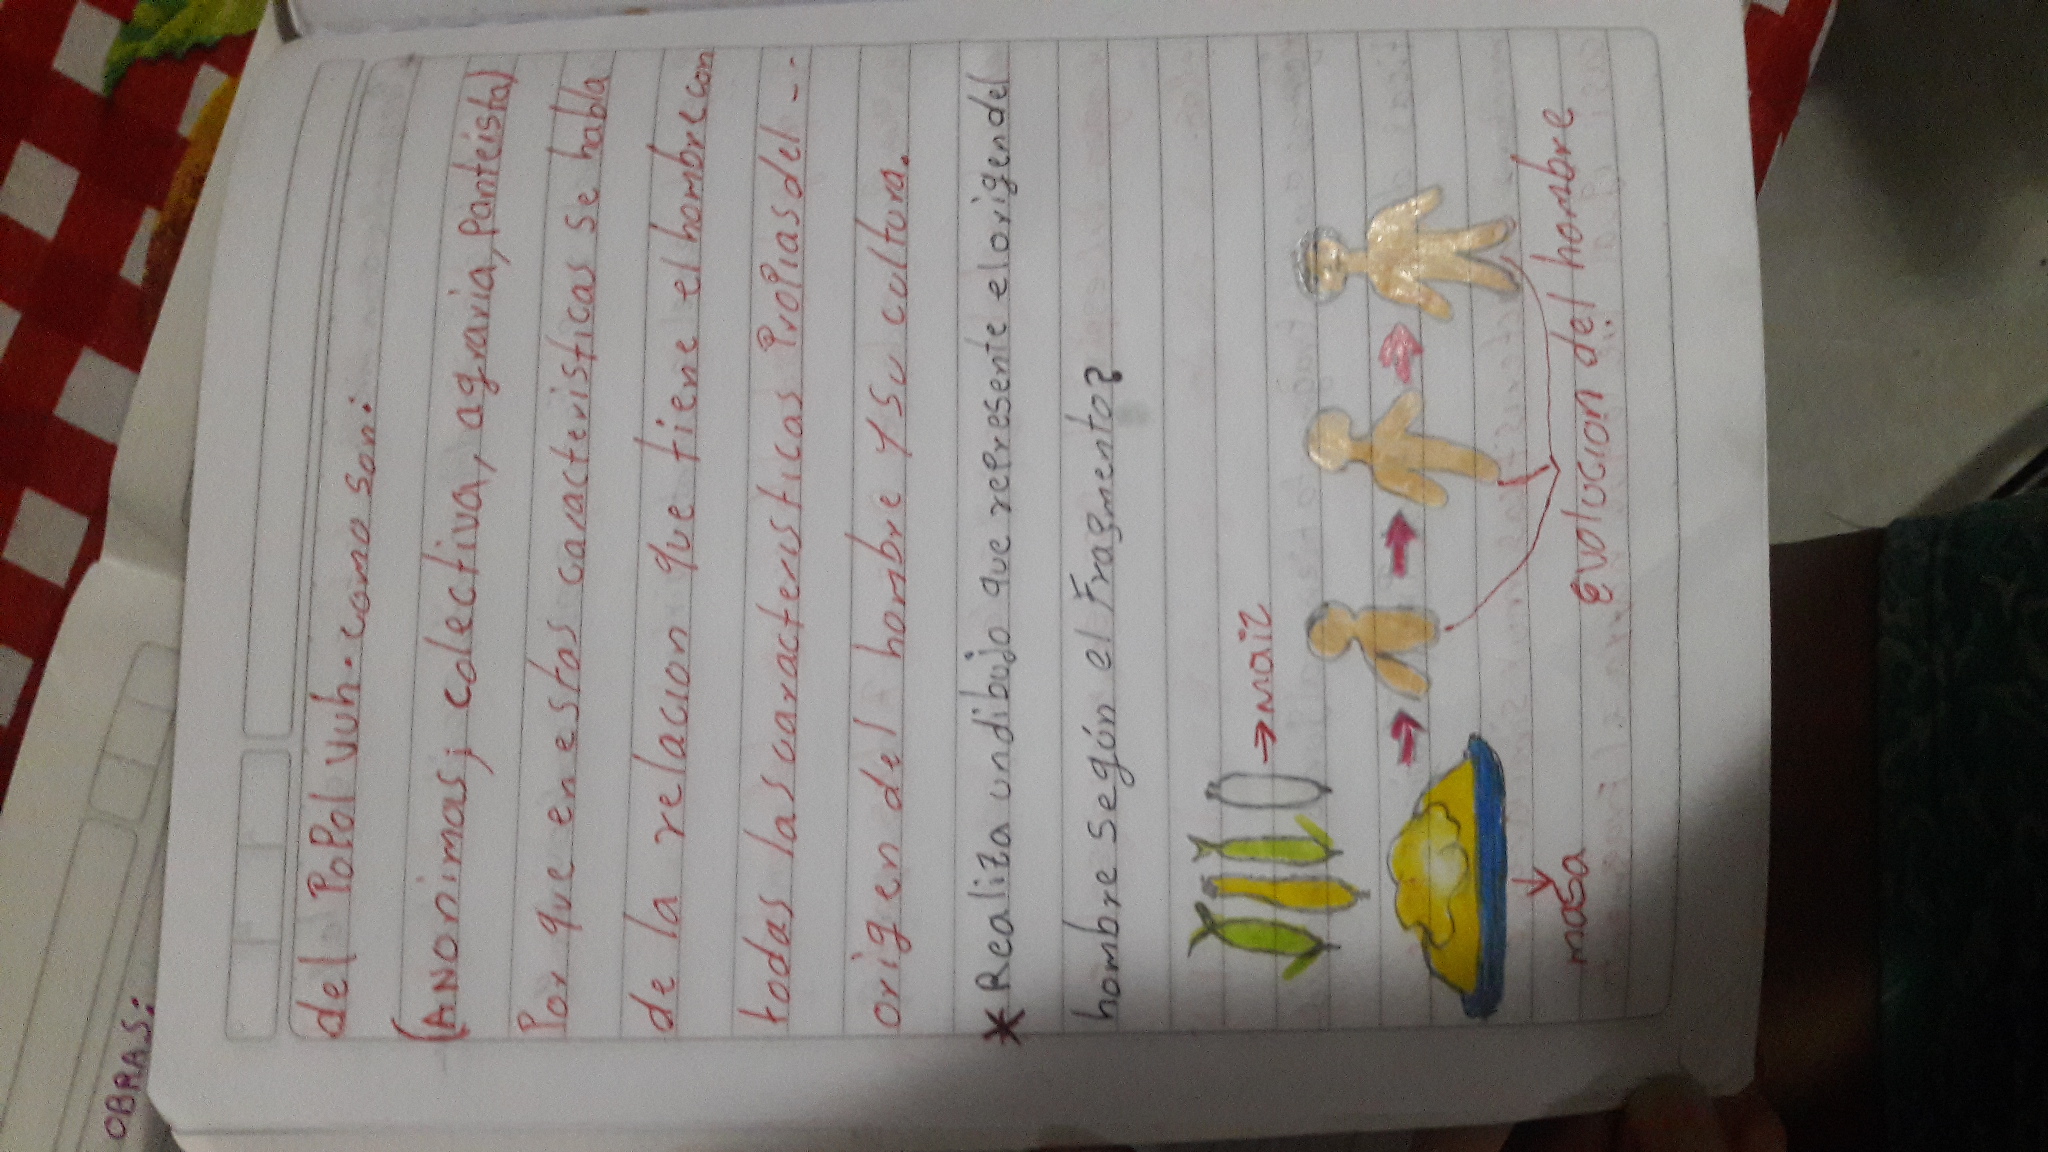 del Popol Vuh. como son:
(ANonimas; colectiva, agraria, panteista)
Por que en estas caracteristicas se habla
de la relacion que tiene el hombre con
todas las caracteristicas propias del --
origen del hombre y su cultura.
* Realiza un dibujo que represente el origen del
hombre según el Fragmento?
→ maiz
masa
Evolucion del hombre
OBRAS: